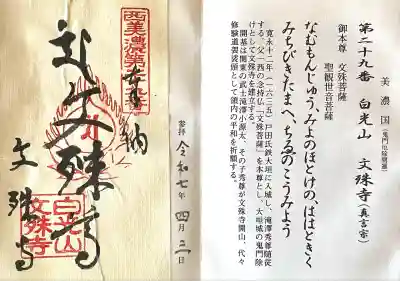 西美濃第廿九番
奉納
文殊尊
文殊寺
白光山
文殊寺
参拝 令和七年 四月 三日
美濃国(鬼門厄除開運)
第二十九番 白光山 文殊寺(真言宗)
御本尊 文殊菩薩
聖観世音菩薩
なむもんじゅう、みよのほとけの、ははときく
みちびきたまへ、ちゑのこうみよう
寛永十二年(一六三五)戸田氏鉄大垣に入城し、滝澤秀尊随従
する。父一西の念持仏「文殊菩薩」を本尊とし、大垣城の鬼門除
けとして文殊寺を建立する。
開基は関東の武士滝澤小源太、その子秀尊が文殊寺開山、代々
修験道袈裟頭として領内の平和を祈願する。